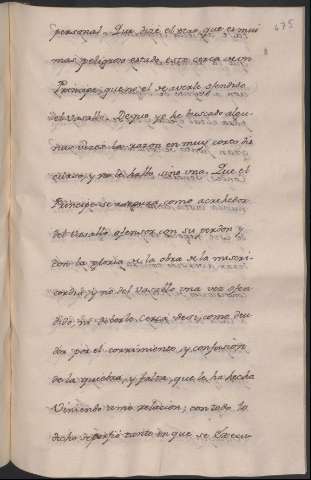 675
personal. Que dize el otro, que es mui
mas peligroso estado, estar cerca de un
Principe, que no el de averle ofendido
del Vasallo. De que yo he buscado algu-
nas vezes la razon en muy corto dis
curso, y no le hallo, sino una. Que el
Principe se como acrehedor
del Vasallo ofensor con su perdon y
con la gloria de la obra de la miseri-
cordia, y no del Vasallo una vez ofen
dido no deberlo cerca de si, como deu-
dor por el corrimiento, y confusion
de la quiebra, y falta, que le ha hecho
Viniendo a mi relacion; con todo lo
dicho porfió tanto en que se